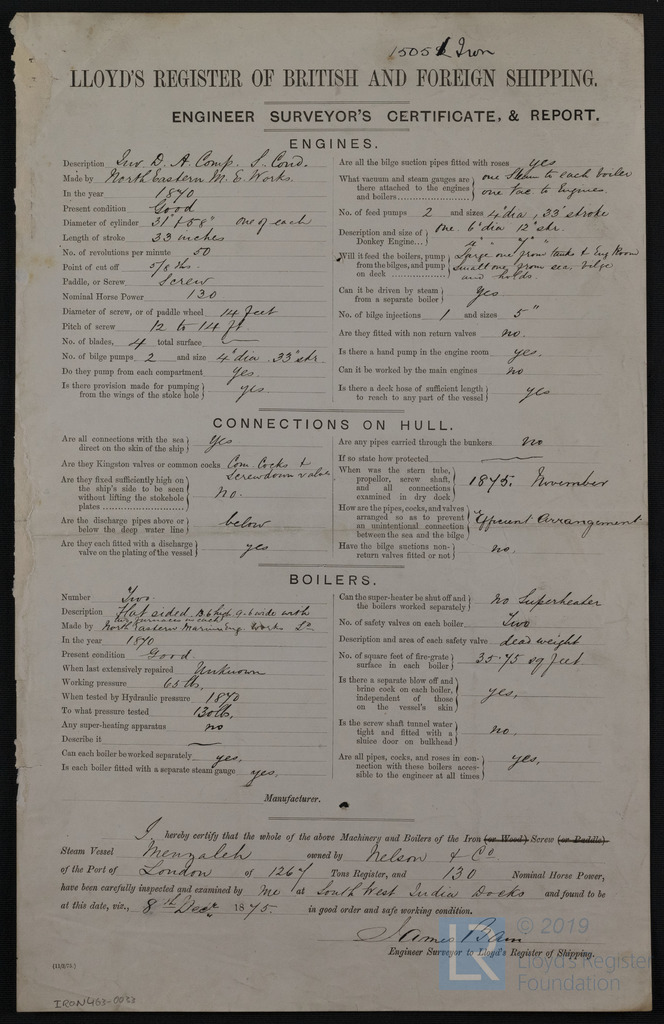 15051 Iron
LLOYD'S REGISTER OF BRITISH AND FOREIGN SHIPPING.
ENGINEER SURVEYOR'S CERTIFICATE, & REPORT.
ENGINES.
Description Inv. D. A. Comp. S. Cond.
Made by North Eastern M. E. Works.
In the year 1870
Present condition Good
Diameter of cylinder 31" & 58" one of each
Length of stroke 33 inches
No. of revolutions per minute 50
Point of cut off 5/8 ths.
Paddle, or Screw Screw
Nominal Horse Power 130
Diameter of screw, or of paddle wheel 14 feet
Pitch of screw 12 to 14 ft
No. of blades, 4 total surface
No. of bilge pumps 2 and size 4" dia. 33" str.
Do they pump from each compartment yes.
Is there provision made for pumping from the wings of the stoke hole } yes.
Are all the bilge suction pipes fitted with roses yes
What vacuum and steam gauges are there attached to the engines and boilers } one Steam to each boiler one Vac to Engines.
No. of feed pumps 2 and sizes 4" dia, 33" stroke
Description and size of Donkey Engine } one. 6" dia 12" str.
Will it feed the boilers, pump from the bilges, and pump on deck } Large one from tanks & Eng Room Small one from sea, bilge and holds.
Can it be driven by steam from a separate boiler } Yes
No. of bilge injections 1 and sizes 5"
Are they fitted with non return valves no.
Is there a hand pump in the engine room yes.
Can it be worked by the main engines no
Is there a deck hose of sufficient length to reach to any part of the vessel } yes
CONNECTIONS ON HULL.
Are all connections with the sea direct on the skin of the ship } yes
Are they Kingston valves or common cocks Com. Cocks & Screwdown valves
Are they fixed sufficiently high on the ship's side to be seen without lifting the stokehole plates } no.
Are the discharge pipes above or below the deep water line } below
Are they each fitted with a discharge valve on the plating of the vessel } yes
Are any pipes carried through the bunkers no
If so state how protected
When was the stern tube, propellor, screw shaft, and all connections examined in dry dock } 1875. November
How are the pipes, cocks, and valves arranged so as to prevent an unintentional connection between the sea and the bilge } Efficient Arrangement
Have the bilge suctions non-return valves fitted or not } no.
BOILERS.
Number Two.
Description Flat sided. 13.6 high 9.6 wide with two furnaces in each
Made by North Eastern Marine Eng. Works Ld
In the year 1870
Present condition Good.
When last extensively repaired Unknown
Working pressure 65 lbs,
When tested by Hydraulic pressure 1870
To what pressure tested 130 lbs,
Any super-heating apparatus no
Describe it
Can each boiler be worked separately yes,
Is each boiler fitted with a separate steam gauge yes,
Can the super-heater be shut off and the boilers worked separately } no Superheater
No. of safety valves on each boiler Two
Description and area of each safety valve dead weight
No. of square feet of fire-grate surface in each boiler } 35.75 sq feet
Is there a separate blow off and brine cock on each boiler, independent of those on the vessel's skin } yes,
Is the screw shaft tunnel water tight and fitted with a sluice door on bulkhead } no,
Are all pipes, cocks, and roses in connection with these boilers accessible to the engineer at all times } yes,
Manufacturer.
I, hereby certify that the whole of the above Machinery and Boilers of the Iron (or Wood) Screw (or Paddle)
Steam Vessel Menzaleh owned by Nelson & Co
of the Port of London of 1267 Tons Register, and 130 Nominal Horse Power,
have been carefully inspected and examined by Me at South West India Docks and found to be
at this date, viz., 8th Decr 1875. in good order and safe working condition.
James Bain
Engineer Surveyor to Lloyd's Register of Shipping.
IRON463-0033
© 2019
LR
Lloyd's Register Foundation